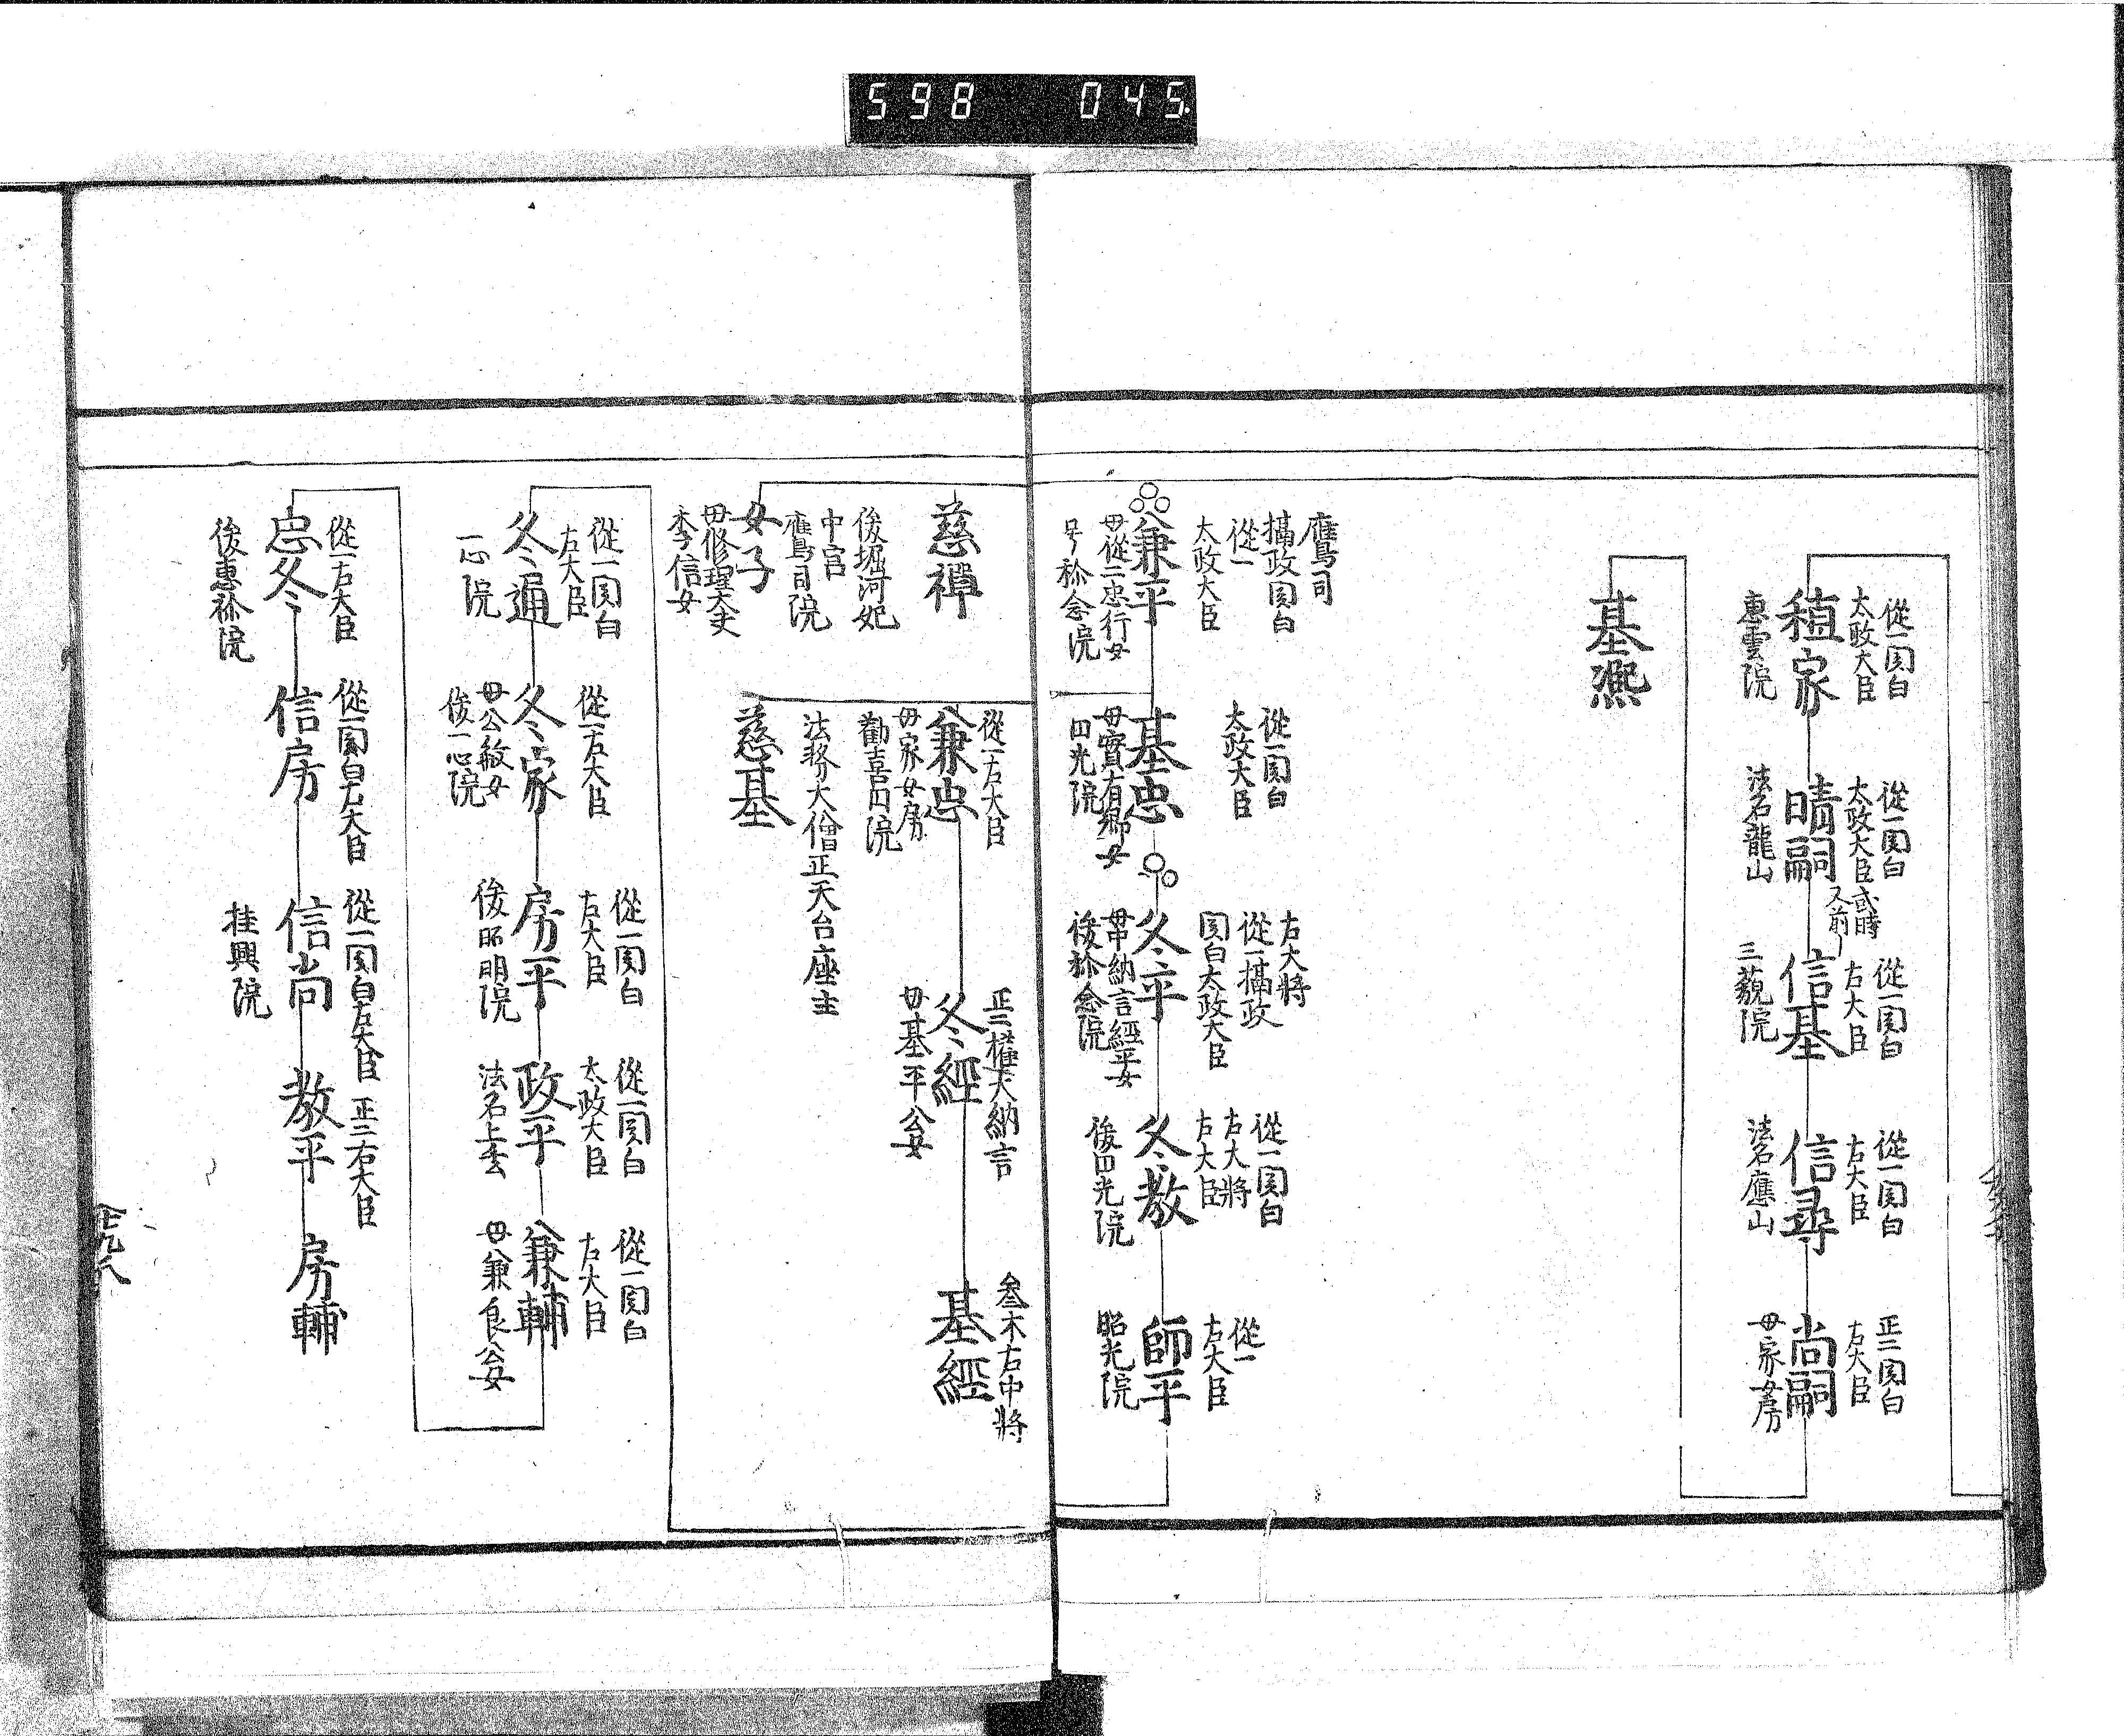 598 045
從一関白
太政大臣
稙家
惠雲院
從一関白
太政大臣
晴嗣
法名龍山
或時
又前
從一関白
左大臣
信基
三藐院
從一関白
左大臣
信尋
法名應山
正二関白
左大臣
尚嗣
母家女房
基熈
鷹司
摂政関白
從一
太政大臣
兼平
母從二忠行女
号称念院
從一関白
太政大臣
基忠
母實有卿女
円光院
左大將
從一摂政
関白太政大臣
冬平
母中納言經平女
後称念院
從一関白
左大將
左大臣
冬教
後円光院
從一
左大臣
師平
昭光院
慈禅
後堀河妃
中宮
鷹司院
女子
母修理大夫
季信女
從一右大臣
兼忠
母家女房
歡喜円院
正二權大納言
冬經
母基平公女
參木右中將
基經
法務大僧正天台座主
慈基
從一関白
左大臣
冬通
一心院
從一右大臣
冬家
母公敏女
後一心院
從一関白
左大臣
房平
後昭明院
從一関白
太政大臣
政平
從一関白
左大臣
兼輔
母兼良公女
從一右大臣
忠冬
後惠称院
信房
從一関白左大臣
信尚
挂興院
正二右大臣
教平
房輔